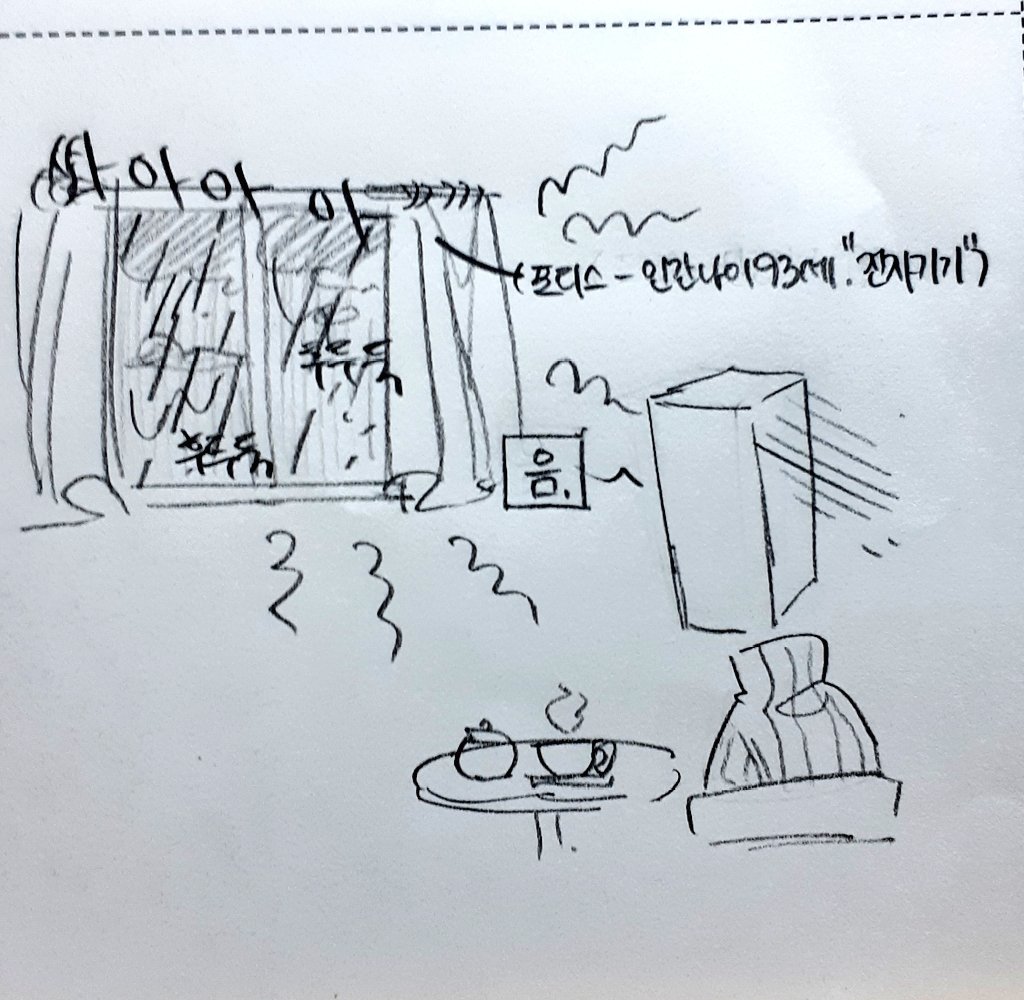 쏴아아아
(프디스 - 인간나이 93세. "전자기기")
후두둑
후두둑
음.